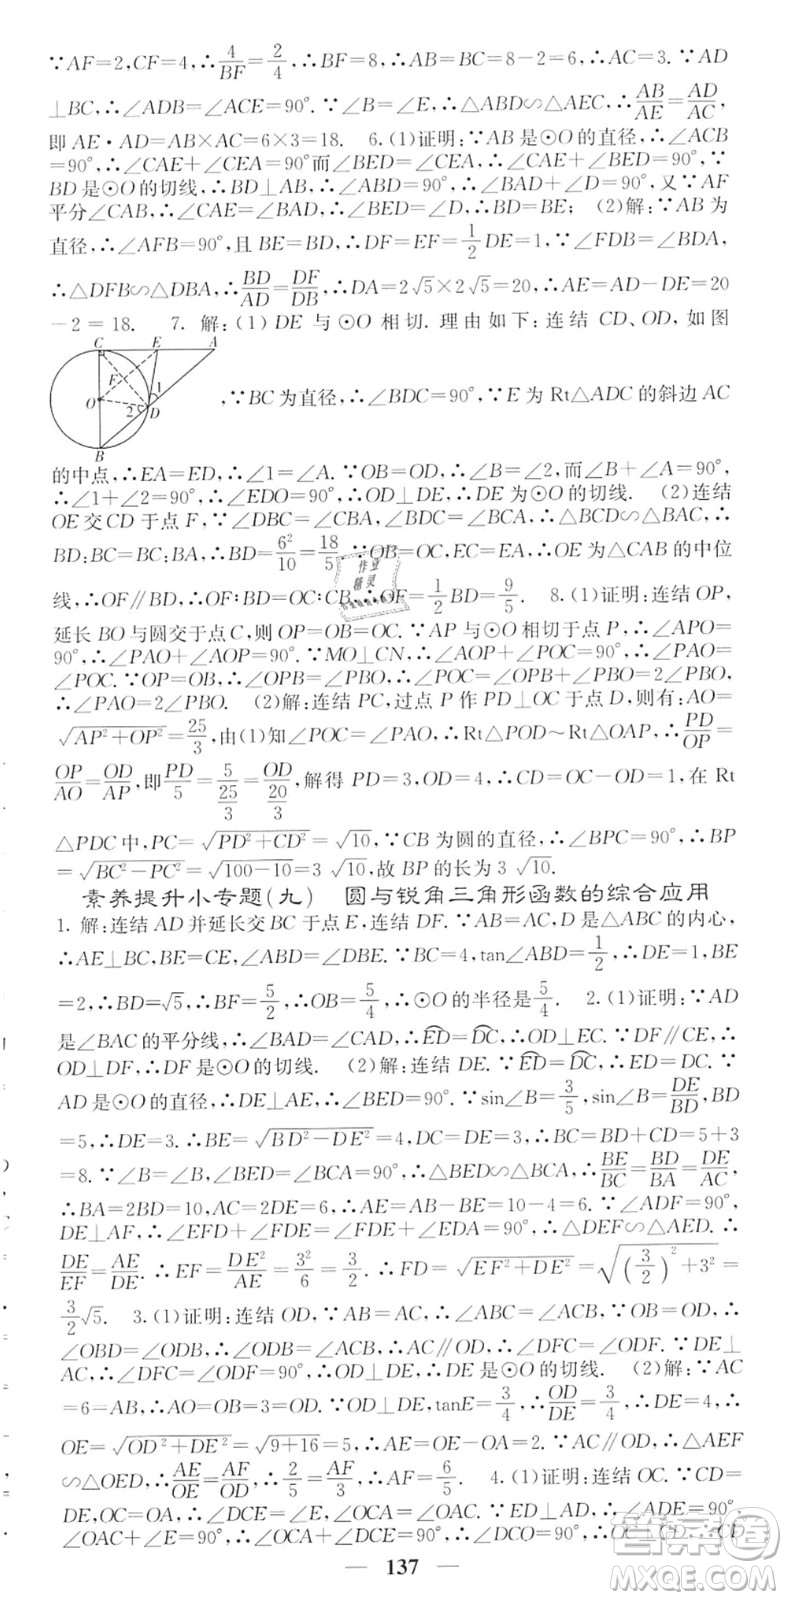 ∵AF=2,CF=4,∴4/BF=2/4,∴BF=8,∴AB=BC=8-2=6,∴AC=3.∵AD
⊥BC,∴∠ADB=∠ACE=90°.∵∠B=∠E,∴△ABD∽△AEC,∴AB/AE=AD/AC,
即 AE·AD=AB×AC=6×3=18. 6.(1)证明:∵AB是⊙O的直径,∴∠ACB
=90°,∴∠CAE+∠CEA=90°而∠BED=∠CEA,∴∠CAE+∠BED=90°,∵
BD是⊙O的切线,∴BD⊥AB,∴∠ABD=90°,∴∠BAD+∠D=90°,又∵AF
平分∠CAB,∴∠CAE=∠BAD,∴∠BED=∠D,∴BD=BE; (2)解:∵AB为
直径,∴∠AFB=90°,且 BE=BD=2√5,∴DF=EF=1/2DE=1,∵∠FDB=∠BDA,
∴△DFB∽△DBA,∴BD/AD=DF/DB,∴DA=2√5×2√5=20,∴AE=AD-DE=20
-2=18. 7. 解:(1) DE 与⊙O 相切.理由如下:连结 CD、OD,如图
C E A
F 1
O 2 D
B
,∵BC为直径,∴∠BDC=90°,∵E 为 Rt△ADC的斜边 AC
的中点,∴EA=ED,∴∠1=∠A.∵OB=OD,∴∠B=∠2,而∠B+∠A=90°,
∴∠1+∠2=90°,∴∠EDO=90°,∴OD⊥DE,∴DE为⊙O的切线. (2)连结
OE交CD于点F,∵∠DBC=∠CBA,∠BDC=∠BCA,∴△BCD∽△BAC,∴
BD:BC=BC:BA,∴BD=6²/10=18/5.∵OB=OC,EA=EC,∴OE为△CAB的中位
线,∴OF∥BD,∴OF:BD=OC:CB,∴OF=1/2BD=9/5. 8.(1)证明:连结OP,
延长 BO与圆交于点C,则 OP=OB=OC.∵AP 与⊙O相切于点P,∴∠APO=
90°,∴∠PAO+∠AOP=90°.∵MO⊥CN,∴∠AOP+∠POC=90°,∴∠PAO=
∠POC.∵OP=OB,∴∠OPB=∠PBO,∴∠POC=2∠PBO,
∴∠PAO=2∠PBO. (2)解:连结PC,过点 P 作 PD⊥OC于点D,则有:AO=
√(AP²+OP²)=25/3,由(1)知∠POC=∠PAO,∴Rt△POD~Rt△OAP,∴PD/OP=
OP/AO=OD/AP,即PD/5=5/(25/3)=OD/(20/3),解得 PD=3,OD=4,∴CD=OC-OD=1,在 Rt
△PDC中,PC=√(PD²+CD²)=√10,∵CB为圆的直径,∴∠BPC=90°,∴BP
=√(BC²-PC²)=√(100-10)=3 √10,故 BP 的长为 3 √10.
素养提升小专题(九) 圆与锐角三角形函数的综合应用
1. 解:连结 AD并延长交BC于点E,连结 DF.∵AB=AC,D是△ABC的内心,
∴AE⊥BC,BE=CE,∠ABD=∠DBE.∵BC=4,tan∠ABD=1/2,∴DE=1,BE
=2,∴BD=√5,∴BF=5/2,∴OB=5/4,∴⊙O的半径是5/4. 2.(1)证明:∵AD
是∠BAC的平分线,∴∠BAD=∠CAD,∴ED⌒=DC⌒,∴OD⊥EC.∵DF∥CE,∴
OD⊥DF,∴DF 是⊙O的切线. (2)解:连结 DE.∵ED⌒=DC⌒,∴ED=DC.∵
AD是⊙O的直径,∴DE⊥AE,∴∠BED=90°.∵sin∠B=3/5,sin∠B=DE/BD,BD
=5,∴DE=3.∴BE=√(BD²-DE²)=4,DC=DE=3,∴BC=BD+CD=5+3
=8.∵∠B=∠B,∠BED=∠BCA=90°,∴△BED∽△BCA,∴BE/BC=BD/BA=DE/AC,
∴BA=2BD=10,AC=2DE=6,∴AE=AB-BE=10-4=6.∵DF⊥AD,
DE⊥AF,∴∠EFD+∠FDE=∠FDE+∠EDA=90°,∴△DEF∽△AED.∴
DE/EF=AE/DE.∴EF=DE²/AE=3²/6=3/2.∴FD=√(EF²+DE²)=√((3/2)²+3²)=
3/2√5. 3.(1)证明:连结 OD,∵AB=AC,∴∠B=∠C,∵OB=OD,∴
∠OBD=∠ODB,∴∠ODB=∠C,∴AC∥OD,∴∠DFC=∠ODF.∵DE⊥
AC,∴∠DFC=∠ODF=90°,∴OD⊥DE,∴DE是⊙O的切线. (2)解:∵AC
=6=AB,∴AO=OB=3=OD.∵OD⊥DE,tanE=3/4,∴OD/DE=3/4,∴DE=4,∴
OE=√(OD²+DE²)=√(9+16)=5,∴AE=OE-OA=2.∵AC∥OD,∴△AEF
∽△OED,∴AE/OE=AF/OD,∴2/5=AF/3,∴AF=6/5. 4.(1)证明:连结 OC.∵CD=
DE,OC=OA,∴∠DCE=∠E,∠OCA=∠OAC.∵ED⊥AD,∴∠ADE=90°,
∠OAC+∠E=90°,∴∠OCA+∠DCE=90°,∴∠DCO=90°,∴OC⊥CD,∴CD
137
作业精灵
答案圈